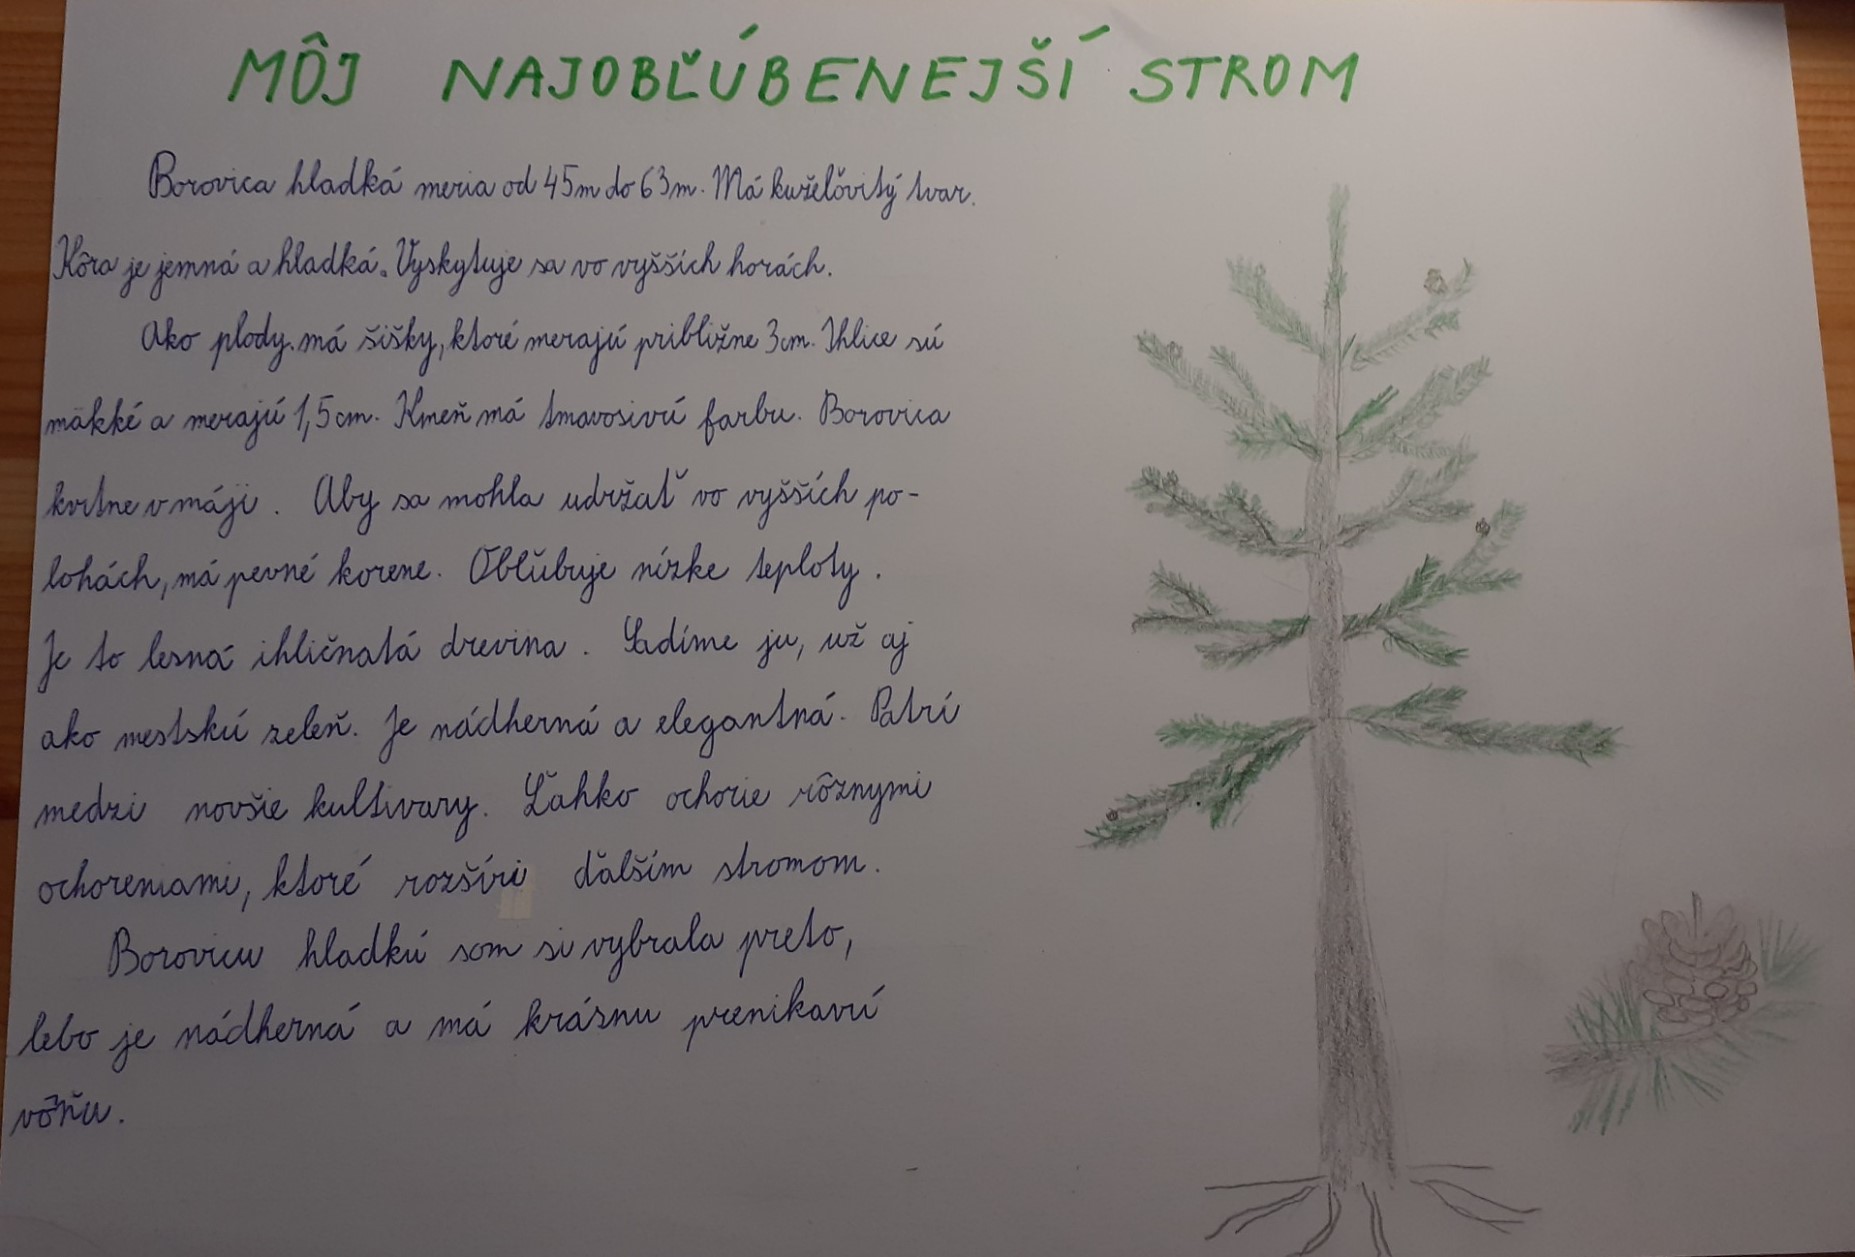 MÔJ NAJOBĽÚBENEJŠÍ STROM
Borovica hladká meria od 45m do 63m. Má kužeľovitý tvar.
Kôra je jemná a hladká. Vyskytuje sa vo vyšších horách.
Ako plody má šišky, ktoré merajú približne 3cm. Ihlice sú
mäkké a merajú 1,5cm. Kmeň má tmavosivú farbu. Borovica
kvitne v máji. Aby sa mohla udržať vo vyšších po-
lohách, má pevné korene. Obľubuje nízke teploty.
Je to lesná ihličnatá drevina. Sadíme ju, už aj
ako mestskú zeleň. Je nádherná a elegantná. Patrí
medzi novšie kultivary. Ľahko ochorie rôznymi
ochoreniami, ktoré rozšíri ďalším stromom.
Borovicu hladkú som si vybrala preto,
lebo je nádherná a má krásnu prenikavú
vôňu.